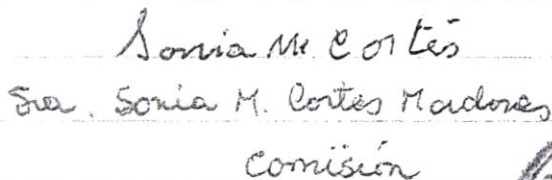 Sonia M Cortés
Sra. Sonia M. Cortes Mardones
Comisión